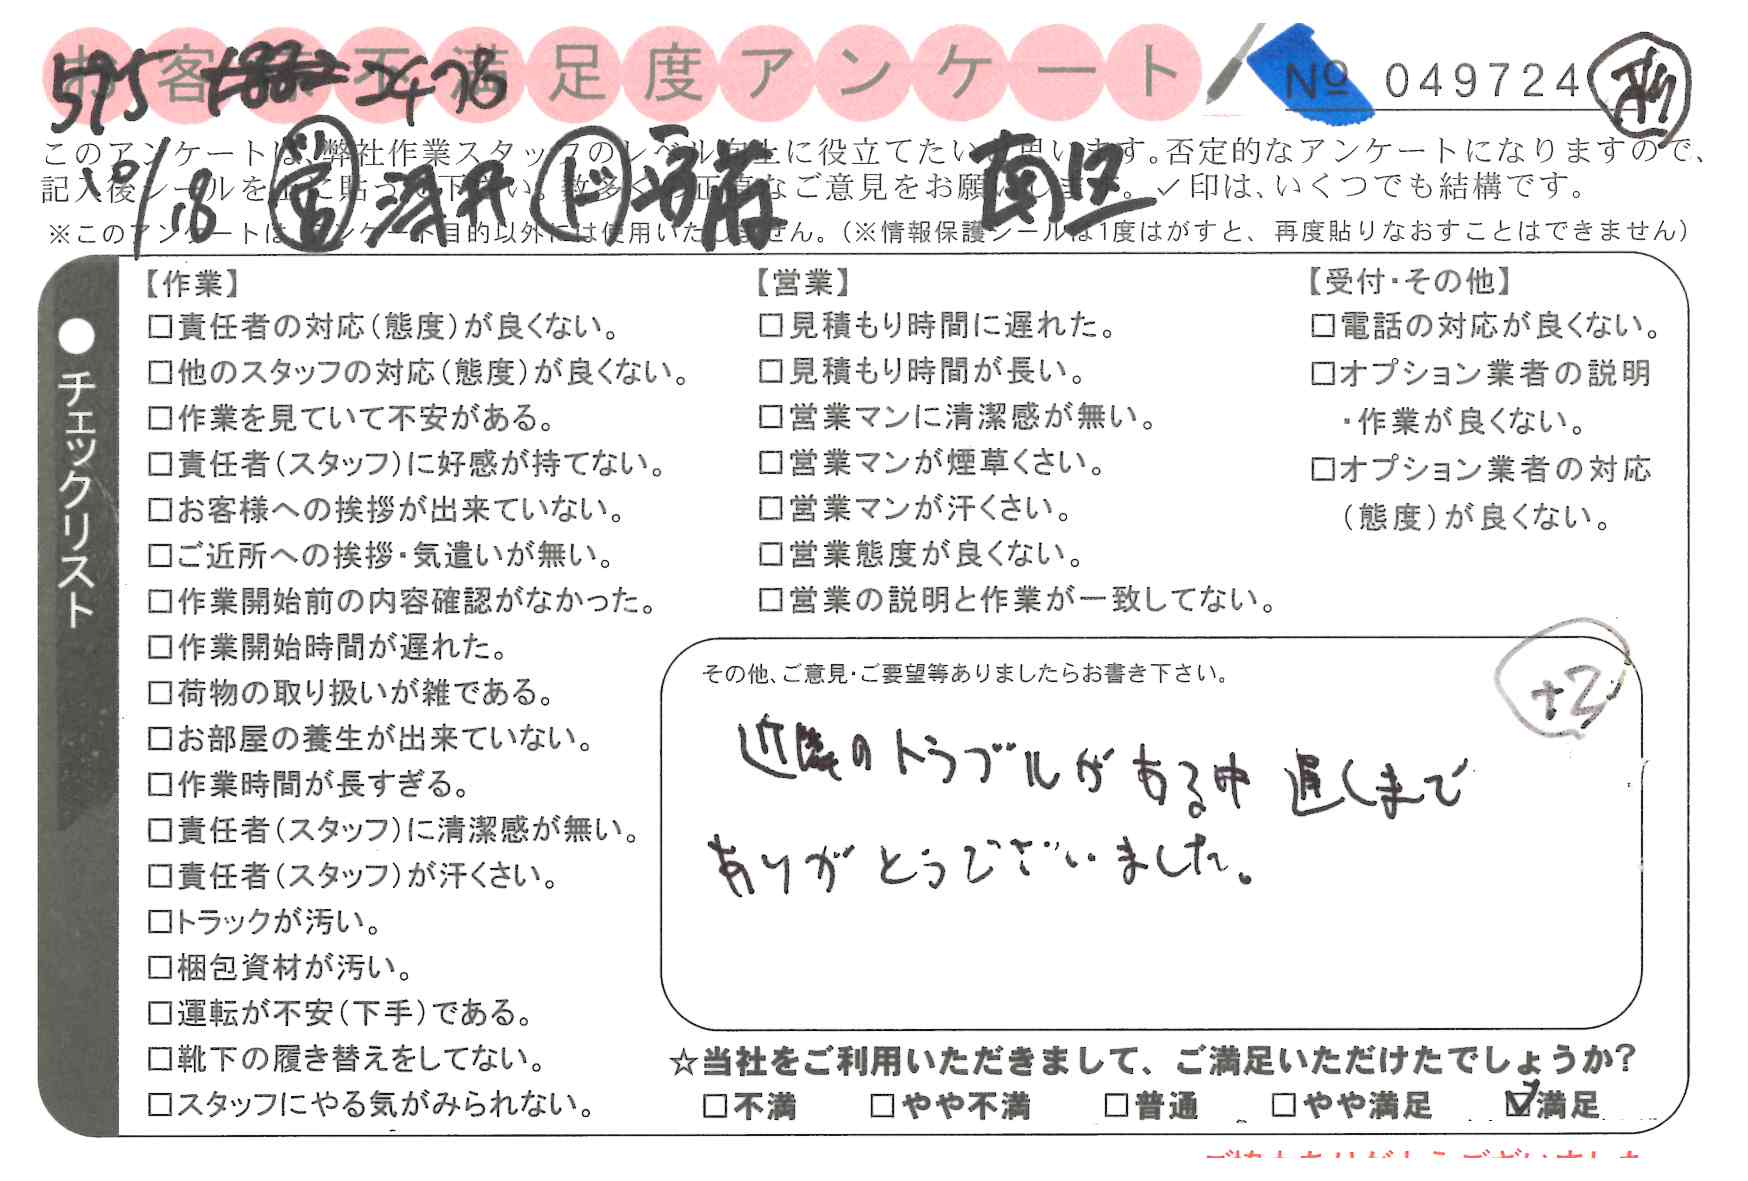 お客様不満足度アンケート
№ 049724
595 2478
このアンケートは、弊社作業スタッフのレベル向上に役立てたいと思います。否定的なアンケートになりますので、
記入後シールを上に貼って下さい。数多くの正直なご意見をお願いします。✓印は、いくつでも結構です。
10/18 営 ド 南区
※このアンケートは、アンケート目的以外には使用いたしません。(※情報保護シールは1度はがすと、再度貼りなおすことはできません)
●チェックリスト
【作業】
□責任者の対応(態度)が良くない。
□他のスタッフの対応(態度)が良くない。
□作業を見ていて不安がある。
□責任者(スタッフ)に好感が持てない。
□お客様への挨拶が出来ていない。
□ご近所への挨拶・気遣いが無い。
□作業開始前の内容確認がなかった。
□作業開始時間が遅れた。
□荷物の取り扱いが雑である。
□お部屋の養生が出来ていない。
□作業時間が長すぎる。
□責任者(スタッフ)に清潔感が無い。
□責任者(スタッフ)が汗くさい。
□トラックが汚い。
□梱包資材が汚い。
□運転が不安(下手)である。
□靴下の履き替えをしてない。
□スタッフにやる気がみられない。
【営業】
□見積もり時間に遅れた。
□見積もり時間が長い。
□営業マンに清潔感が無い。
□営業マンが煙草くさい。
□営業マンが汗くさい。
□営業態度が良くない。
□営業の説明と作業が一致してない。
【受付・その他】
□電話の対応が良くない。
□オプション業者の説明
・作業が良くない。
□オプション業者の対応
(態度)が良くない。
その他、ご意見・ご要望等ありましたらお書き下さい。
+2
近隣のトラブルがある中 遅くまで
ありがとうございました。
☆当社をご利用いただきまして、ご満足いただけたでしょうか?
□不満 □やや不満 □普通 □やや満足 ☑満足
ご協力ありがとうございました